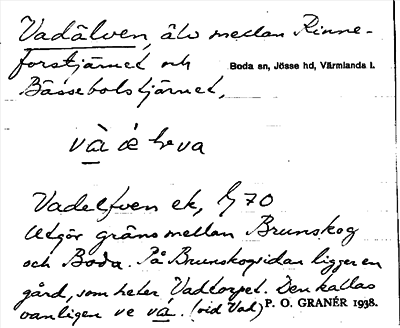 Vadälven, älv mellan Rinne-
forstjärnet och
Boda sn, Jösse hd, Värmlands l.
Bässebolstjärnet,
Vadelfven ek, 70
Utgör gräns mellan Brunskog
och Boda. På Brunskogsidan ligger en
gård, som heter Vadtorpet. Den kallas
vanligen ve vá. (vid Vad)
P. O. GRANÉR 1938.